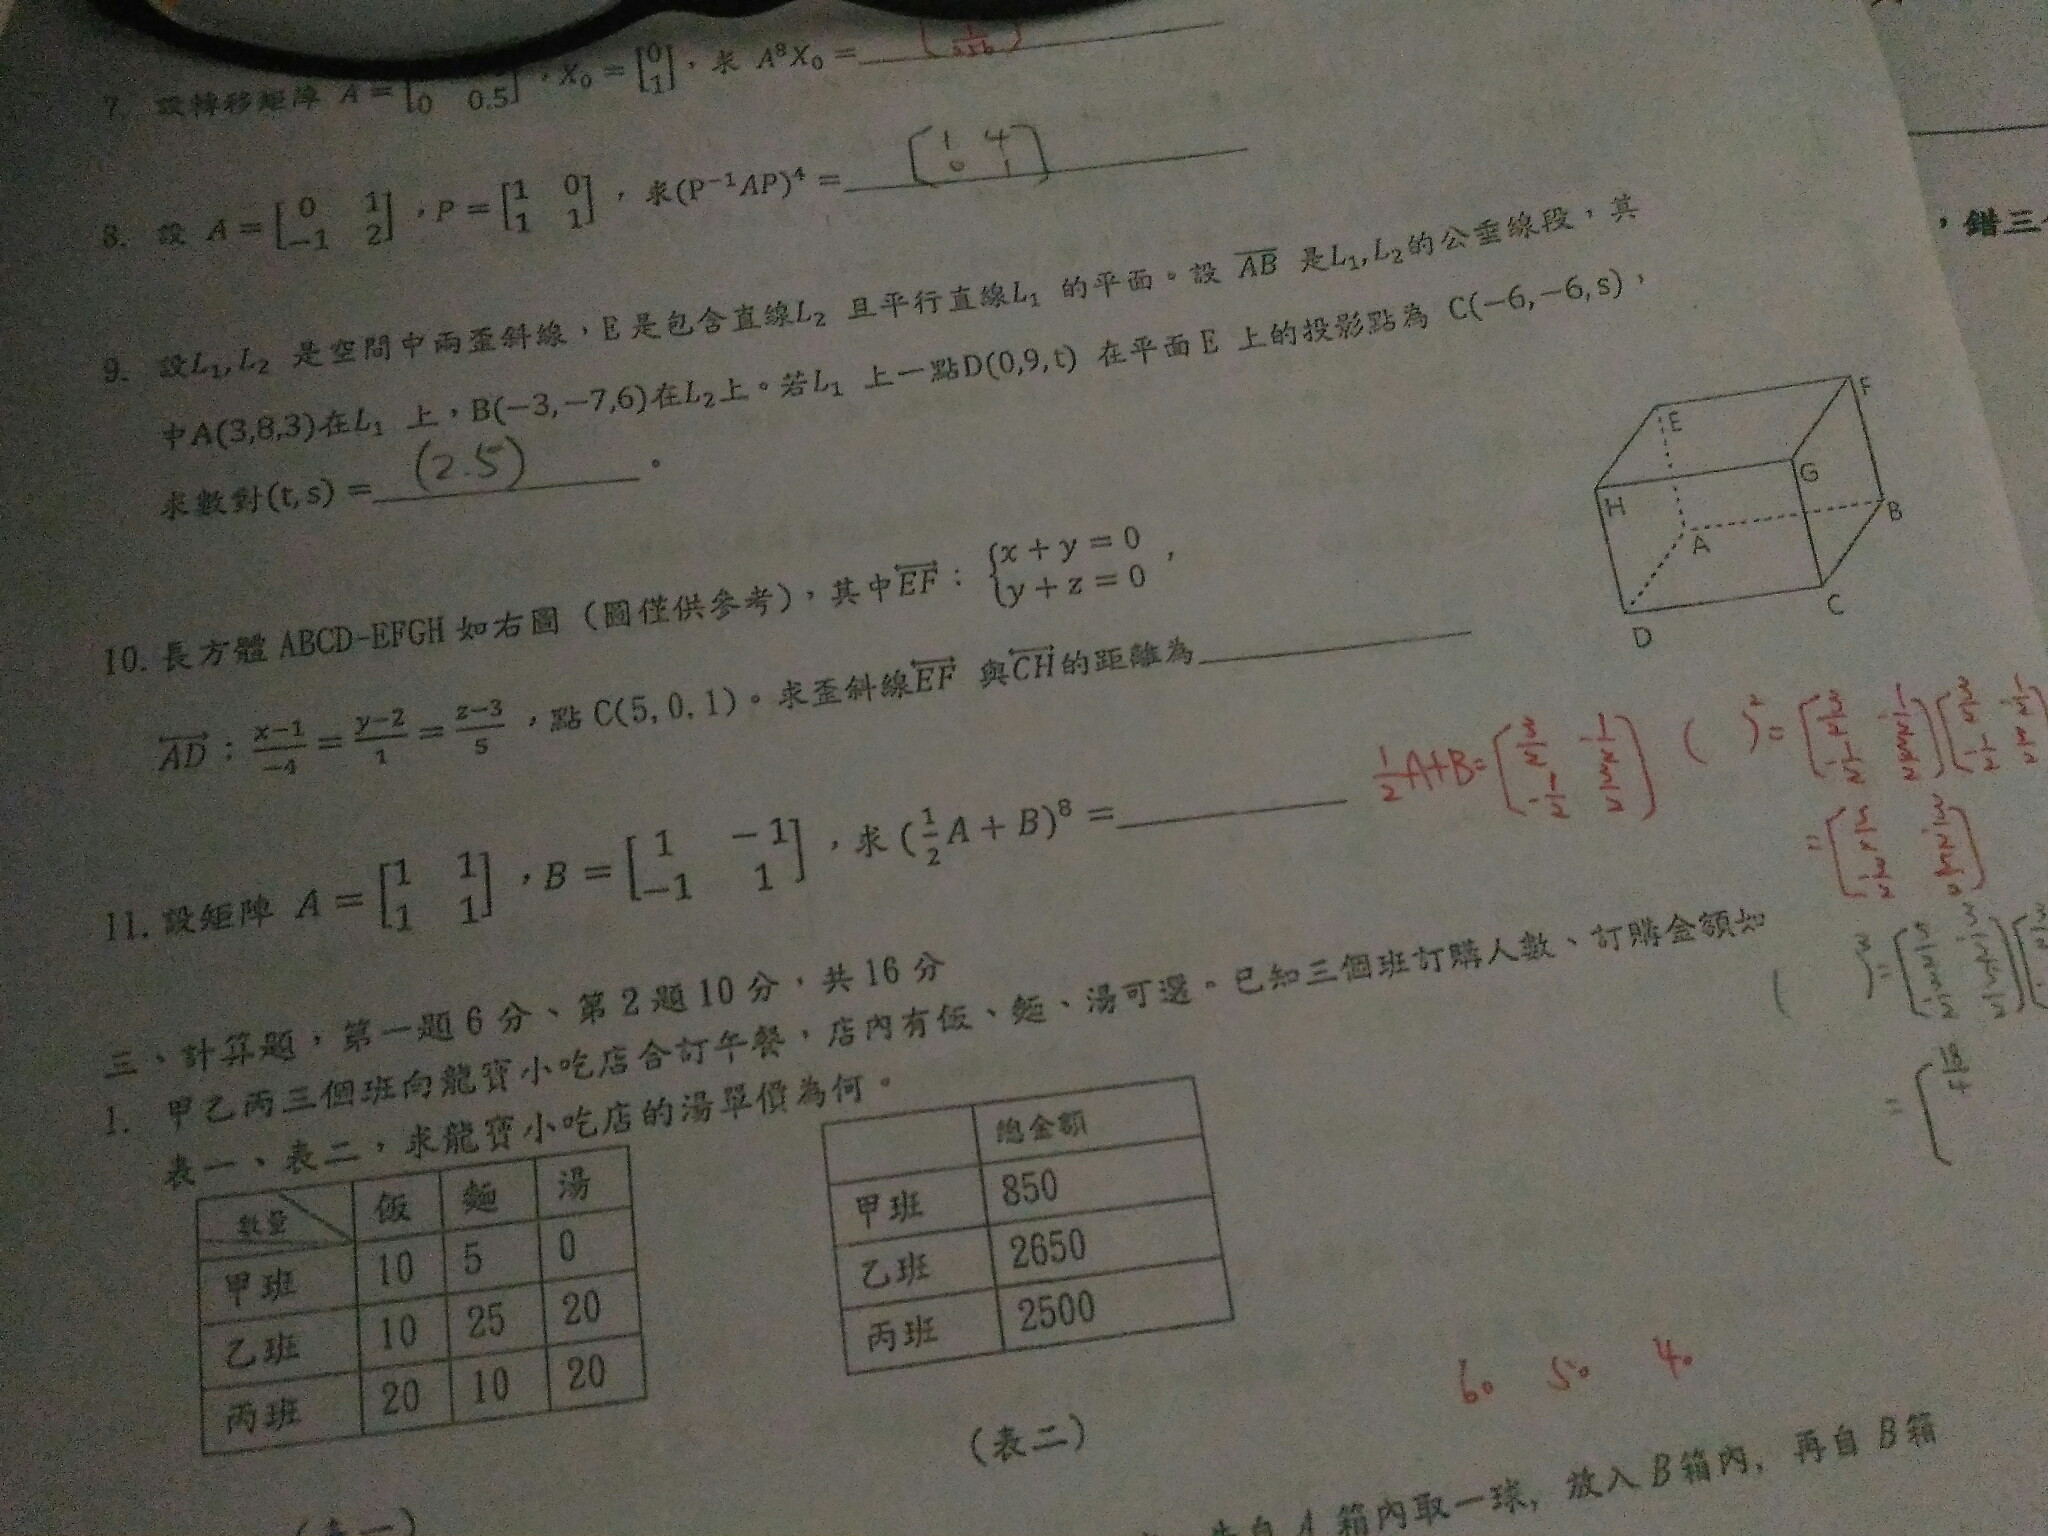 7. 設轉移矩陣 A = [0 0.5], X₀ = [0 1], 求 A⁸X₀ =
8. 設 A = [0 1 -1 2], P = [1 0 1 1], 求(P⁻¹AP)⁴ = [1 4 0 1]
9. 設L₁, L₂ 是空間中兩歪斜線,E是包含直線L₂ 且平行直線L₁ 的平面。設 AB 是L₁, L₂的公垂線段,其
中A(3,8,3)在L₁ 上,B(−3,−7,6)在L₂上。若L₁ 上一點D(0,9,t) 在平面E 上的投影點為 C(−6,−6,s),
求數對(t,s) = (2.5) 。
E F H G A B D C
10. 長方體 ABCD-EFGH 如右圖(圖僅供參考),其中EF : { x + y = 0 y + z = 0 ,
AD : x−1/−4 = y−2/1 = z−3/5 ,點 C(5, 0, 1)。求歪斜線EF 與CH的距離為
11. 設矩陣 A = [1 1 1 1], B = [1 −1 −1 1], 求 (1/2 A + B)⁸ =
1/2 A+B= [3/2 -1/2 -1/2 3/2] ( )² =
( )³ =
18/4
三、計算題,第一題6分、第2題10分,共16分
1. 甲乙丙三個班向龍寶小吃店合訂午餐,店內有飯、麵、湯可選。已知三個班訂購人數、訂購金額如
表一、表二,求龍寶小吃店的湯單價為何。
數量 飯 麵 湯
甲班 10 5 0
乙班 10 25 20
丙班 20 10 20
總金額
甲班 850
乙班 2650
丙班 2500
60 50 40
(表二)
(表一)
箱內取一球, 放入 B 箱內, 再自 B 箱
, 錯三